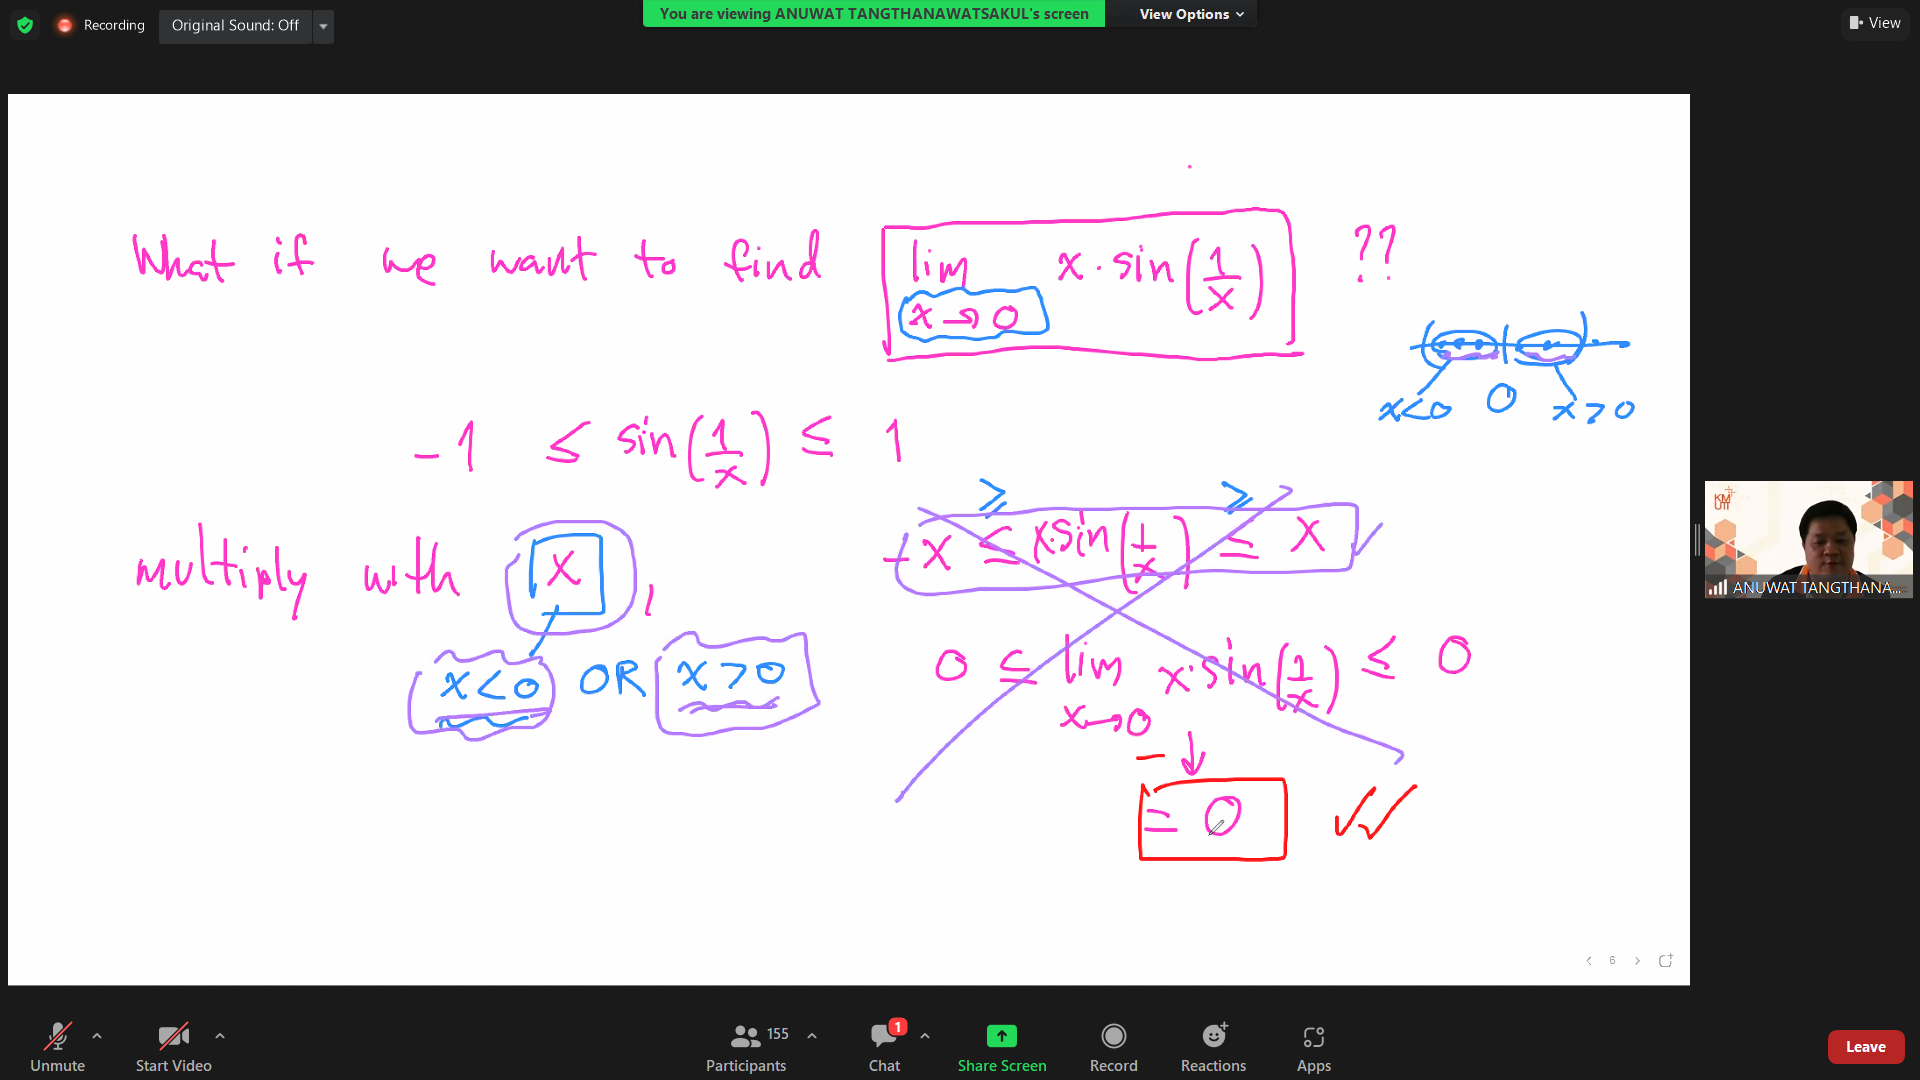 Recording
Original Sound: Off
You are viewing ANUWAT TANGTHANAWATSAKUL's screen
View Options
View
What if we want to find lim x→0 x·sin(1/x) ??
x<0 0 x>0
-1 ≤ sin(1/x) ≤ 1
≥ ≥
multiply with x, -x ≤ x·sin(1/x) ≤ x
x<0 OR x>0
0 ≤ lim x→0 x·sin(1/x) ≤ 0
= 0
KM
UTT
ANUWAT TANGTHANA...
6
Unmute
Start Video
155
Participants
1
Chat
Share Screen
Record
Reactions
Apps
Leave